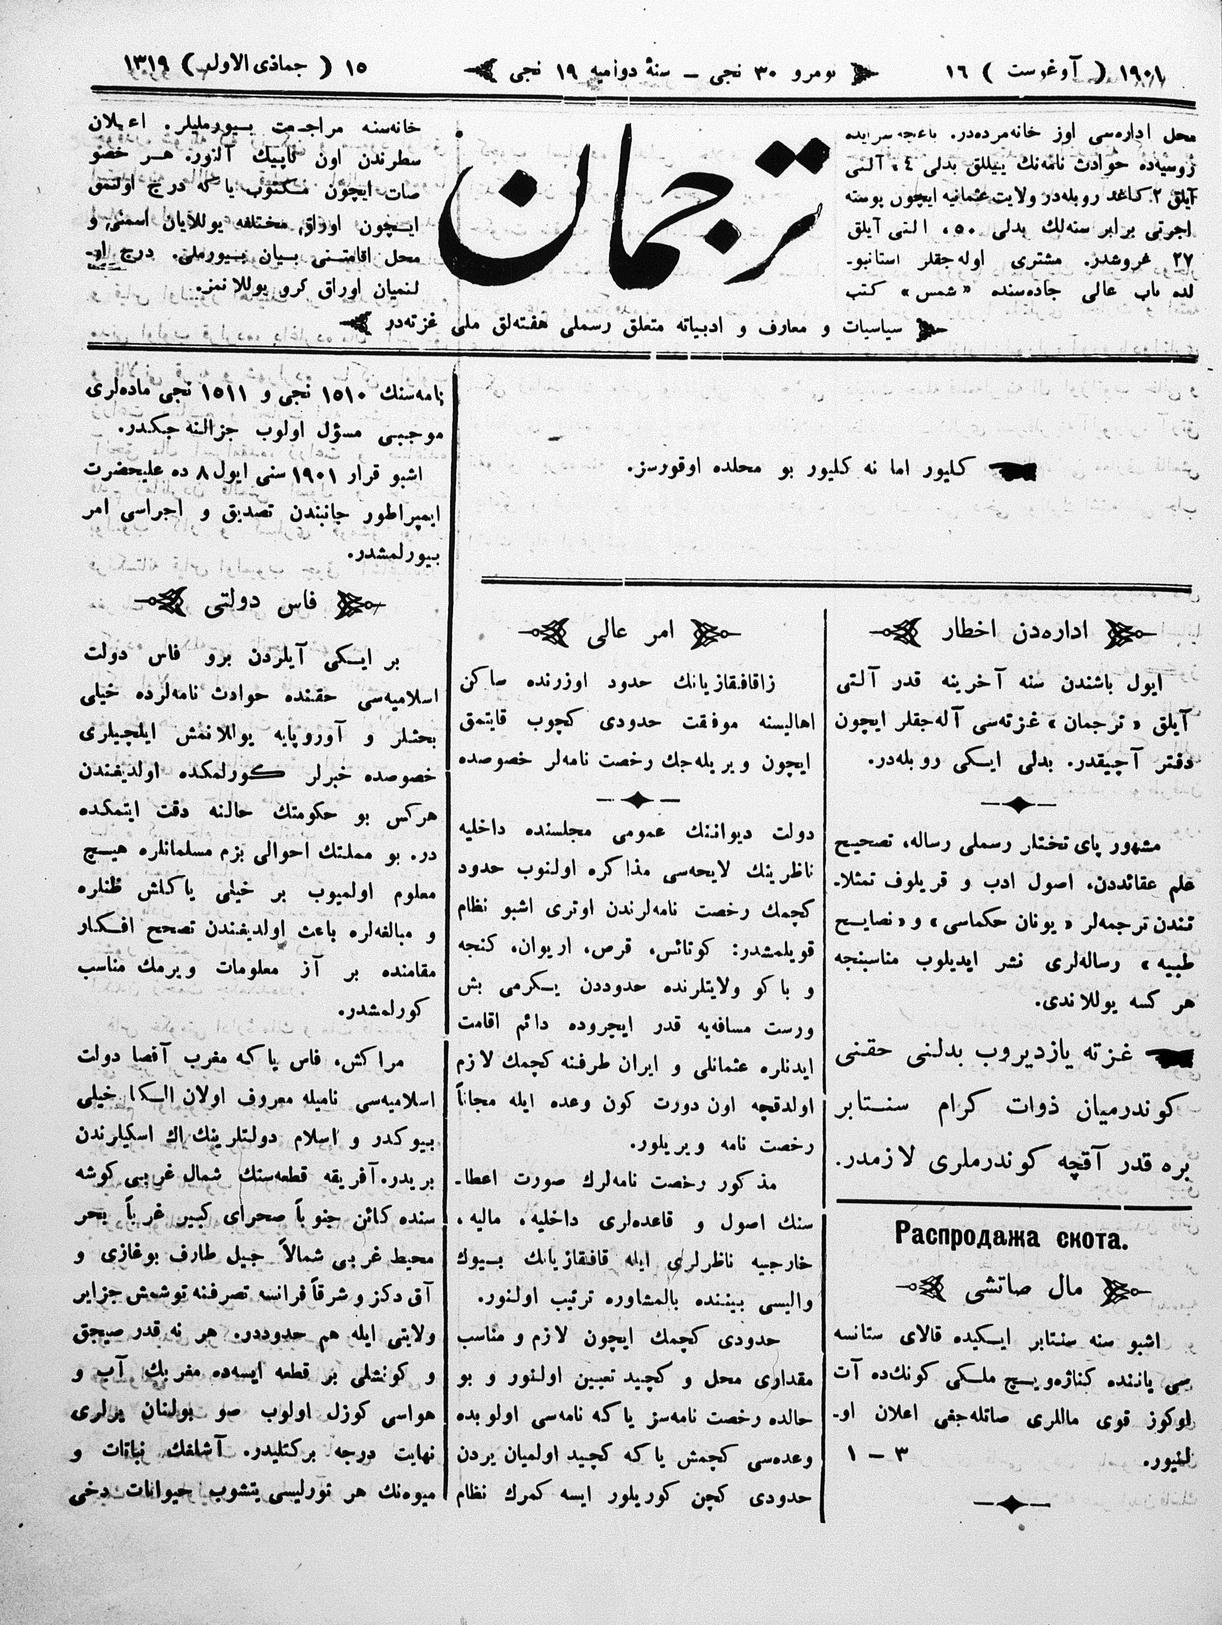 ١٩٠١ ( آوغوست ) ١٦
نومرو ٣٠ نجی ـ سنهٔ دوامیه ١٩ نجی
١٥ ( جماذی الاولی ) ١٣١٩
محل اداره‌سی اوز خانه مزده‌در. باغچه سرایده
روسیه‌ده حوادث نامه‌نك ییللق بدلی ٤، آلتی
آیلق ٢ کاغد روبله‌در ولایت عثمانیه ایچون پوسته
اجرتی برابر سنه‌لك بدلی ٥٠، التی آیلق
٢٧ غروشدر. مشتری اوله جقلر استانبو‌ـ
لده باب عالی جاده‌سنده «شمس» کتب
ترجمان
خانه‌سنه مراجعت بیورملیلر. اعلان
سطرندن اون کاپیك آلنور. هر خصو
صات ایچون مکتوب یا که درج اولنمق
ایچون اوراق مختلفه یوللایان اسمنی و
محل اقامتنی بیان بیورملی. درج او‌ـ
لنمیان اوراق کرو یوللانمز.
سیاسیات و معارف و ادبیاته متعلق رسملی هفته‌لق ملی غزته‌در
کلیور اما نه کلیور بو محلده اوقورسز.
اداره‌دن اخطار
ایول باشندن سنه آخرینه قدر آلتی
آیلق «ترجمان» غزته‌سی آله‌جقلر ایچون
دفتر آچیقدر. بدلی ایکی روبله‌در.
مشهور پای تختلر رسملی رساله، تصحیح
علم عقائددن، اصول ادب و قریلوف تمثلا‌ـ
تندن ترجمه‌لر «یونان حکماسی» و «نصایح
طبیه» رساله‌لری نشر ایدیلوب مناسبنجه
هر کسه یوللاندی.
غزته یازدیروب بدلنی حقنی
کوندرمیان ذوات کرام سنتابر
بره قدر آقچه کوندرملری لازمدر.
Распродажа скота.
مال صاتشی
اشبو سنه سنتابر ایکیده قالای ستانسه
سی یاننده کنازه‌ویچ ملکی کونك‌ده آت
اوکوز قوی ماللری صاتله‌جغی اعلان او‌ـ
لنیور. ٣ – ١
امر عالی
زاقافقازیانك حدود اوزرنده ساکن
اهالیسنه موفقت حدودی کچوب قایتمق
ایچون ویریله‌جك رخصت نامه‌لر خصوصده
دولت دیواننك عمومی مجلسنده داخلیه
ناظرینك لایحه‌سی مذاکره اولنوب حدود
کچمك رخصت نامه‌لرندن اوتری اشبو نظام
قویلمشدر: کوتائس، قرص، اریوان، کنجه
و باکو ولایتلرنده حدوددن یکرمی بش
ورست مسافه‌یه قدر ایچروده دائم اقامت
ایدنلره عثمانلی و ایران طرفنه کچمك لازم
اولدقچه اون دورت کون وعده ایله مجاناً
رخصت نامه ویریلور.
مذکور رخصت نامه‌لرك صورت اعطا‌ـ
سنك اصول و قاعده‌لری داخلیه، مالیه،
خارجیه ناظرلری ایله قافقازیانك بیوك
والیسی بیننده بالمشاوره ترتیب اولنور.
حدودی کچمك ایچون لازم و مناسب
مقداری محل و کچید تعیین اولنور و بو
حالده رخصت نامه‌سز یا که نامه‌سی اولوبده
وعده‌سی کچمش یا که کچید اولمیان یردن
حدودی کچن کوریلور ایسه کمرك نظام
نامه‌سنك ١٥١٠ نجی و ١٥١١ نجی ماده‌لری
موجبی مسؤل اولوب جزالنه جکدر.
اشبو قرار ١٩٠١ سنی ایول ٨ ده علیحضرت
ایمپراطور جانبندن تصدیق و اجراسی امر
بیورلمشدر.
فاس دولتی
بر ایکی آیلردن برو فاس دولت
اسلامیه‌سی حقنده حوادث نامه‌لرده خیلی
بحثلر و آوروپایه یوللانمش ایلچیلری
خصوصده خبرلر کورلمکده اولدیغندن
هرکس بو حکومتك حالنه دقت ایتمکده
در. بو مملتك احوالی بزم مسلمانلره هیچ
معلوم اولمیوب بر خیلی یاکلش ظنلره
و مبالغه‌لره باعث اولدیغندن تصحح افکار
مقامنده بر آز معلومات ویرمك مناسب
کورلمشدر.
مراکش، فاس یا که مغرب آقصا دولت
اسلامیه‌سی نامیله معروف اولان الکا خیلی
بیوکدر و اسلام دولتلرینك اك اسکیلرندن
بریدر. آفریقه قطعه‌سنك شمال غربی کوشه
سنده کائن جنوباً صحرای کبیر غرباً بحر
محیط غربی شمالاً جبل طارف بوغازی و
آق دکز و شرقاً فرانسه تصرفنه توشمش جزایر
ولایتی ایله هم حدوددر. هر نه قدر صیجق
و کونشلی بر قطعه ایسه‌ده مغربك آب و
هواسی کوزل اولوب صو بولنان یرلری
نهایت درجه برکتلیدر. آشلفك نباتات و
میوه‌نك هر تورلیسی یتشوب حیوانات دخی